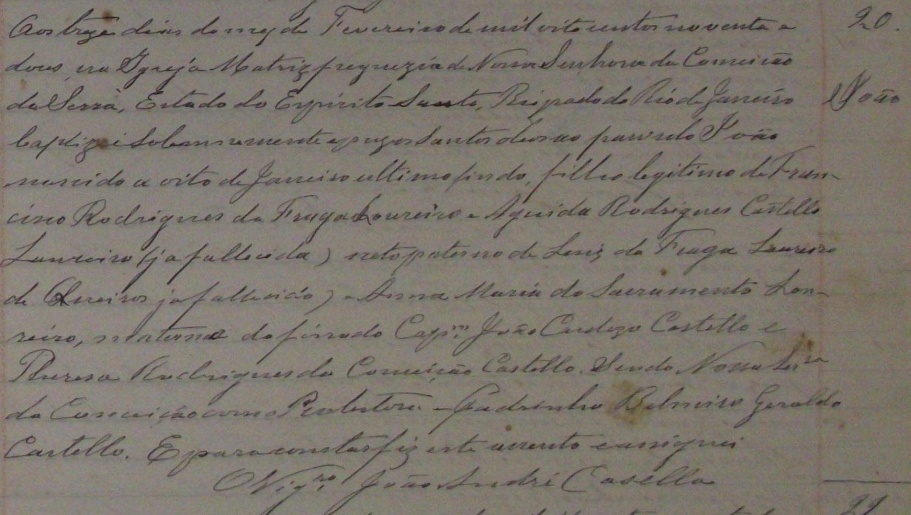 20.
Aos treze dias do mez de Fevereiro de mil oito centos noventa e
dous, na Igreja Matriz freguezia de Nossa Senhora da Conceicão
da Serra, Estado do Espirito Santo, Bispado do Rio de Janeiro
João
baptizei solemnemente e puz os Santos oleos ao parvulo João
nascido a oito de Janeiro ultimo findo, filho legitimo de Fran-
cisco Rodrigues da Fraga Loureiro e Aguida Rodrigues Castello
Loureiro (ja fallecida) neto paterno de Luiz da Fraga Loureiro
de (ja fallecido) e Anna Maria do Sacramento Lou-
reiro, materno do finado Cap.m João Cardozo Castello e
Thereza Rodrigues da Conceição Castello. Sendo Nossa Senra
da Conceição como Protectora - Padrinho Belmiro Geraldo
Castello. E para constar fiz este assento e assignei
O Vigro João André Casella
21